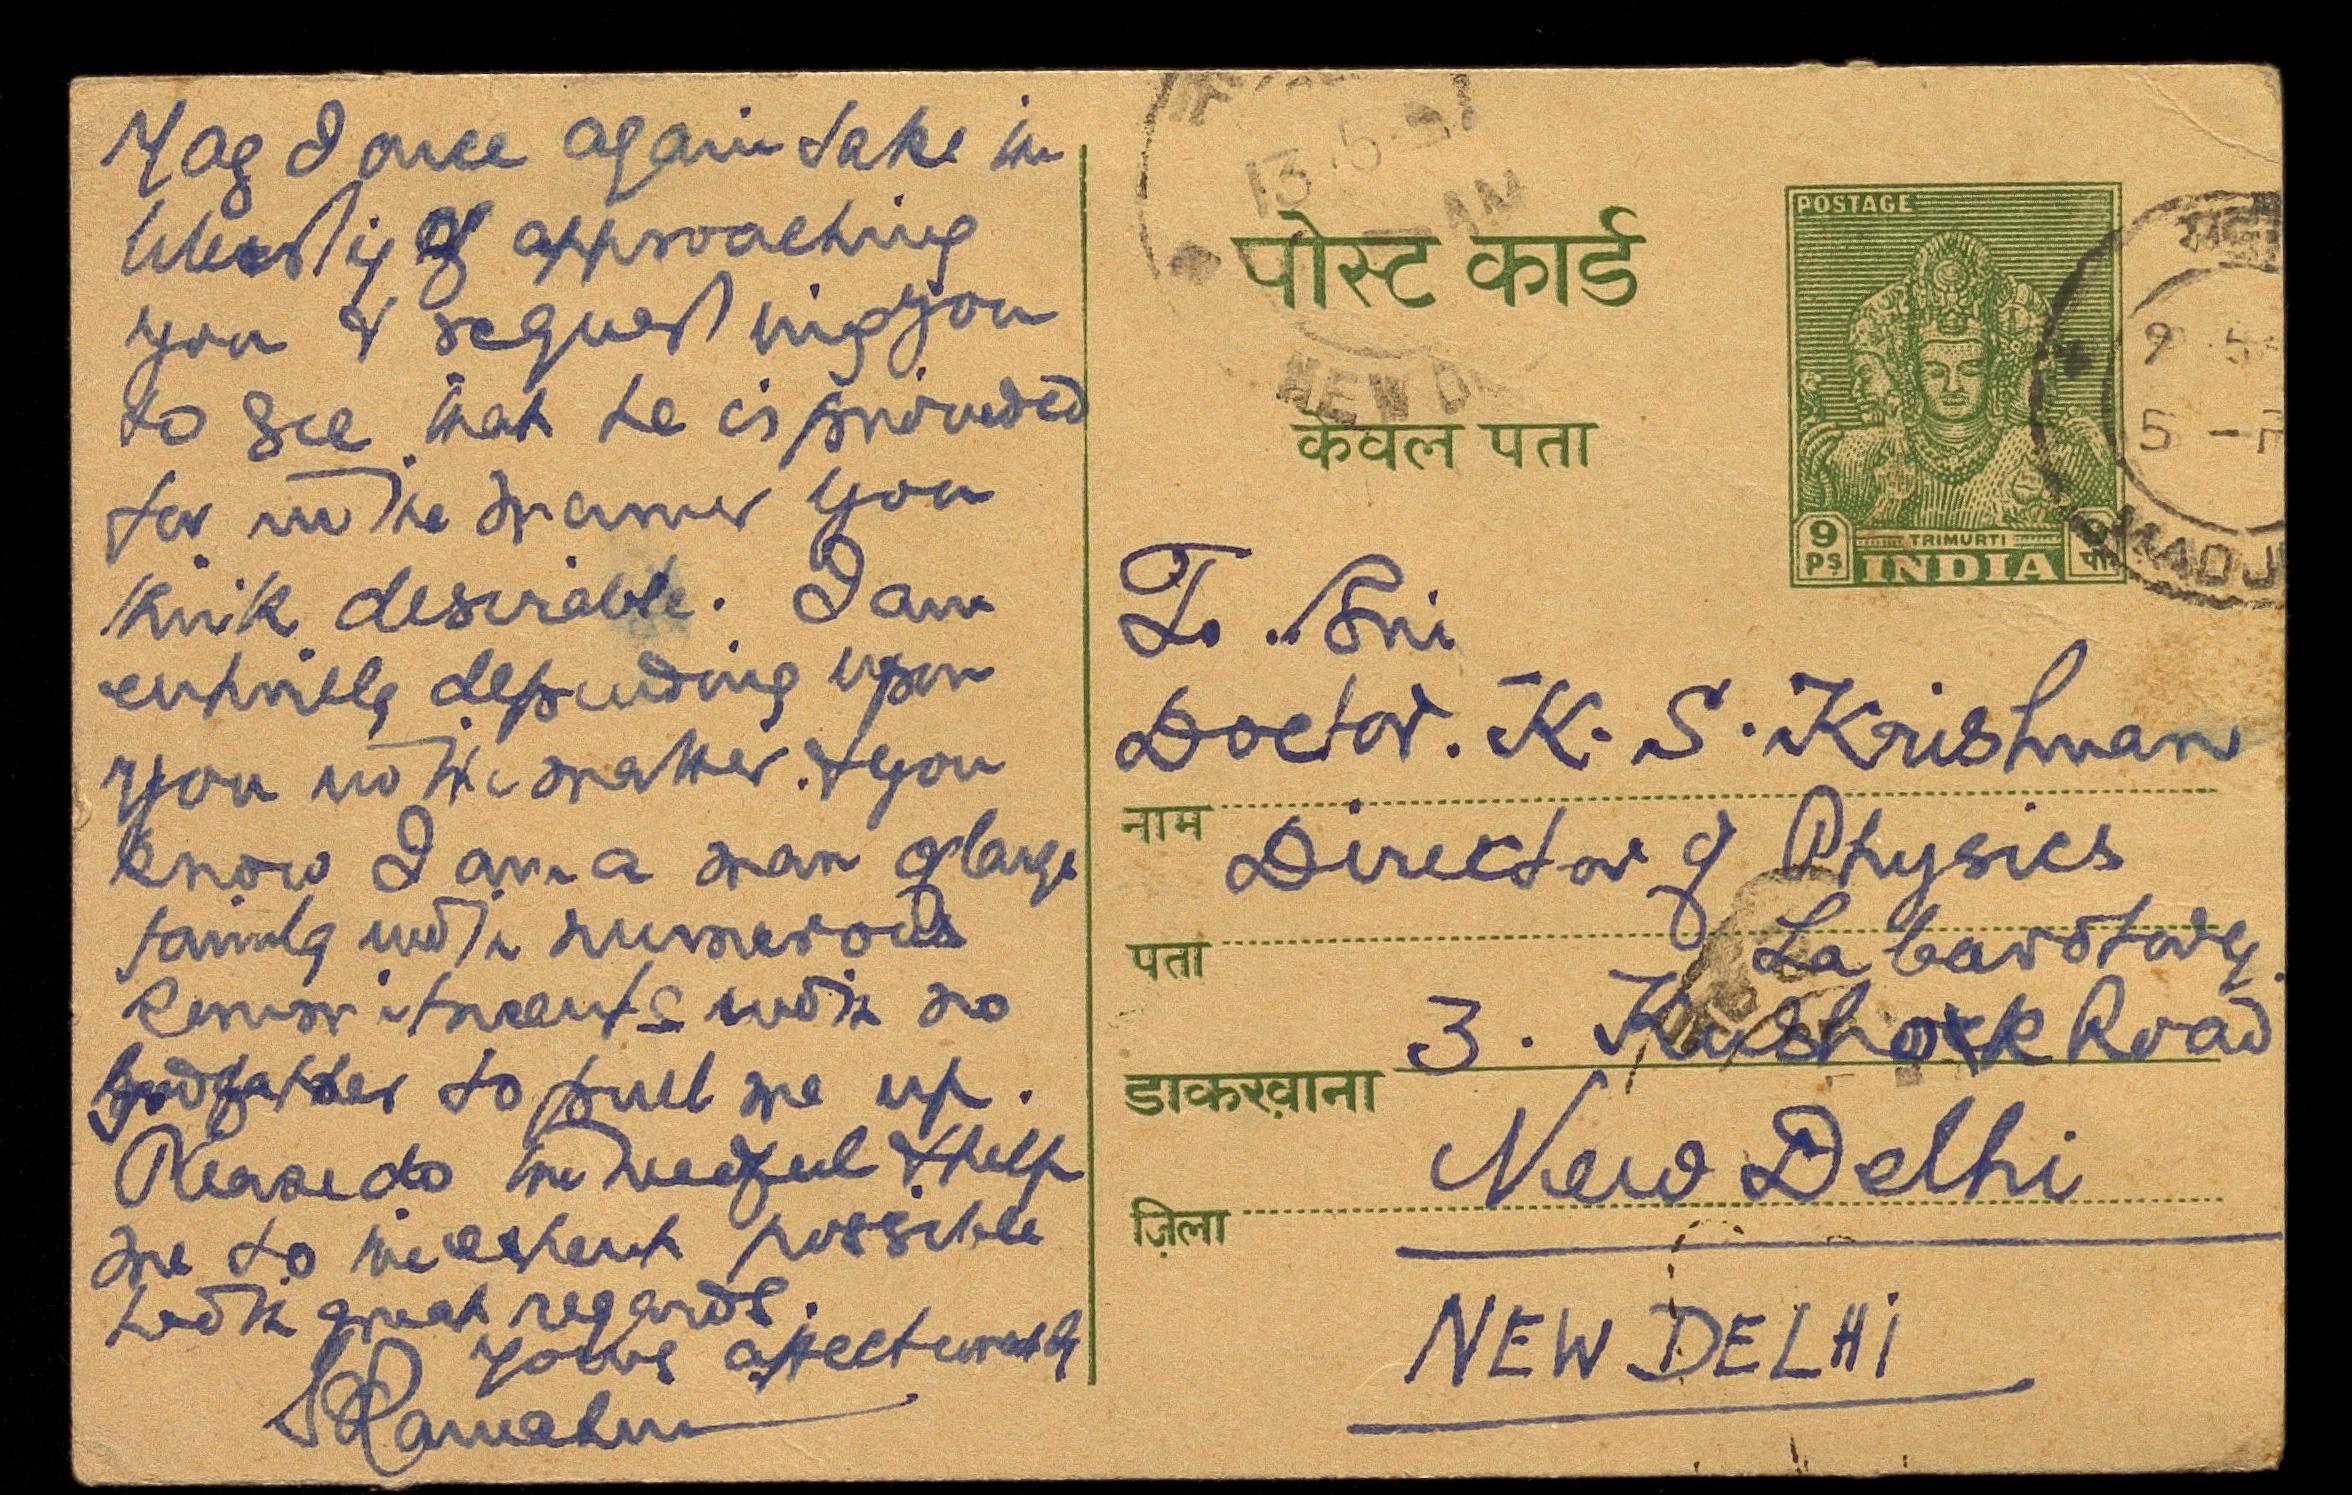 May I once again take the
liberty of approaching
you & requesting you
to see that he is provided
for in the manner you
think desirable. I am
entirely depending upon
you in the matter. & you
know I am a man of large
family with numerous
commitments with no
godfather to pull me up.
Please do the needful & help
me to the extent possible
with great regards.
Yours affectionately
13.5.57
AM
NEW DE
पोस्ट कार्ड
केवल पता
POSTAGE
9 ps
TRIMURTI
INDIA
9 पै
9 5
5
MADU
To Sri
Doctor. K. S. Krishnan
नाम
Director of Physics
पता
Labarotory.
3. Kushock Road
डाकख़ाना
New Delhi
ज़िला
NEW DELHI